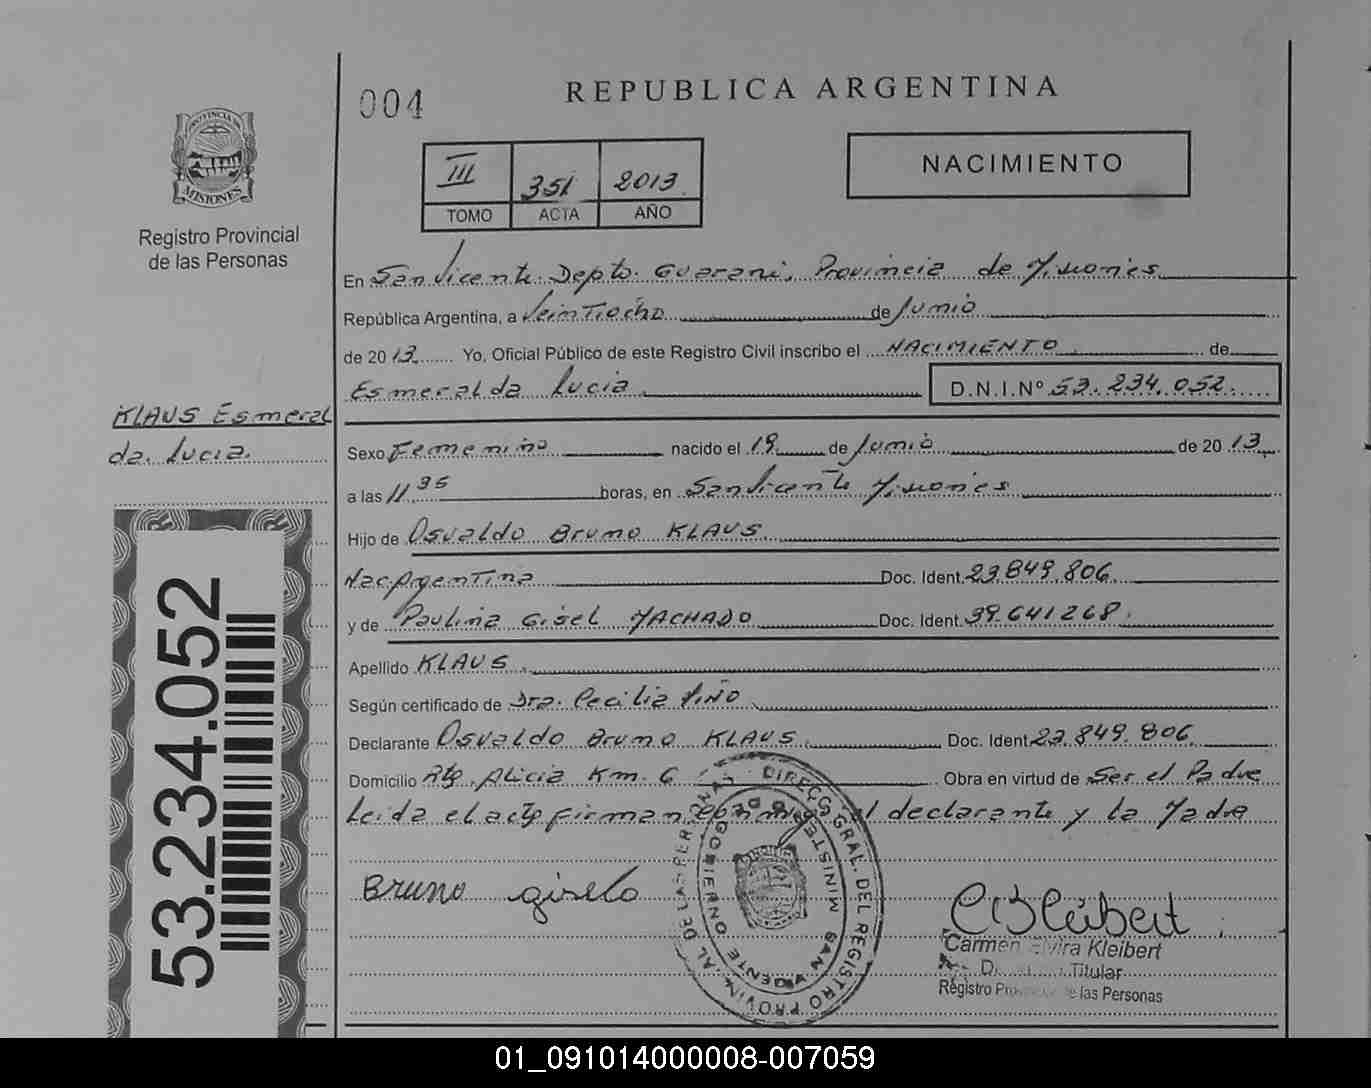 004
REPUBLICA ARGENTINA
PROVINCIA DE
MISIONES
Registro Provincial
de las Personas
III 351 2013
TOMO ACTA AÑO
NACIMIENTO
En San Vicente. Depto. Guarani, Provincia de Misiones
República Argentina, a Veintiocho de Junio
de 2013 Yo, Oficial Público de este Registro Civil inscribo el NACIMIENTO de
Esmeralda Lucia D.N.I.Nº 53.234.052
KLAUS Esmeral
da. Lucia.
Sexo Femenino nacido el 19 de Junio de 2013
a las 11 35 horas, en San Vicente Misiones
Hijo de Osvaldo Bruno KLAUS
Nac. Argentina Doc. Ident. 23.849.806
y de Paulina Gisel MACHADO Doc. Ident. 39.641268
Apellido KLAUS
Según certificado de Dra. Cecilia
Declarante Osvaldo Bruno KLAUS Doc. Ident. 23.849.806
Domicilio Alicia Km. 6 Obra en virtud de Ser el Padre
Leida el acta firman el declarante y la Madre
53.234.052
Bruno gisela
DIRECC. GRAL. DEL REGISTRO PROVINCIAL DE LAS PERSONAS
MINISTERIO DE GOBIERNO
SAN VICENTE
CEKleibert
Carmen Elvira Kleibert
Titular
Registro Provincial de las Personas
01_091014000008-007059